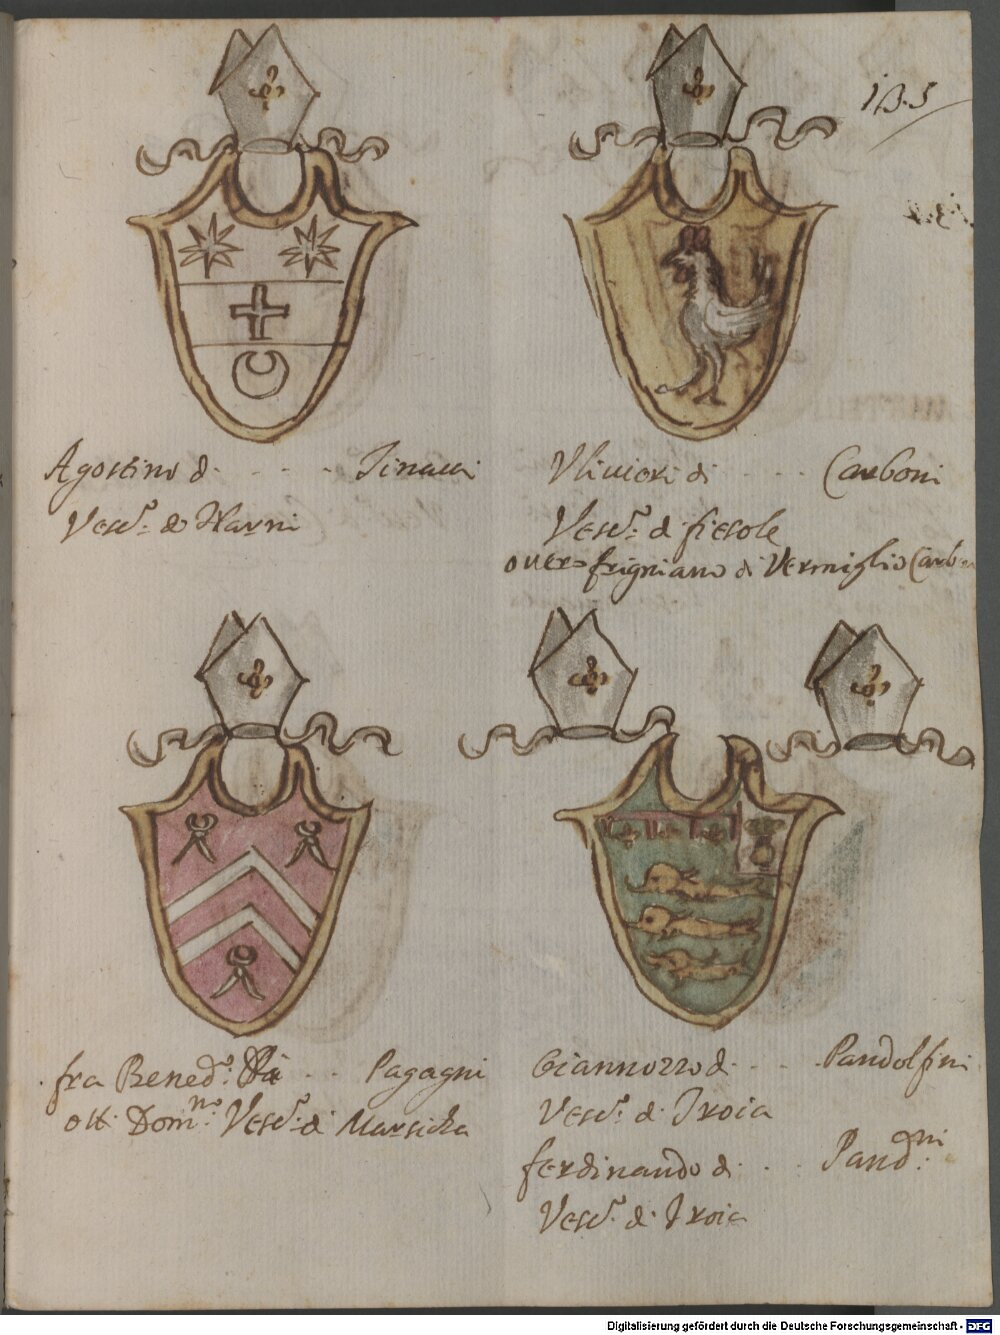 183.5
Agostino d. - - - - Tinacci
Vesc.º di Narni
Ulivieri di - - - - Carboni
Vesc.º di fiesole
overo frigniano di Vermiglio Carb
fra Bened.º di - - Pagagni
ott. Dom.no Vesc.º di Marsicha
Giannozzo d. - - Pandolfini
Vesc.º di Troia
ferdinando d. - - Pand.ni
Vesc.º di Troia
Digitalisierung gefördert durch die Deutsche Forschungsgemeinschaft - DFG